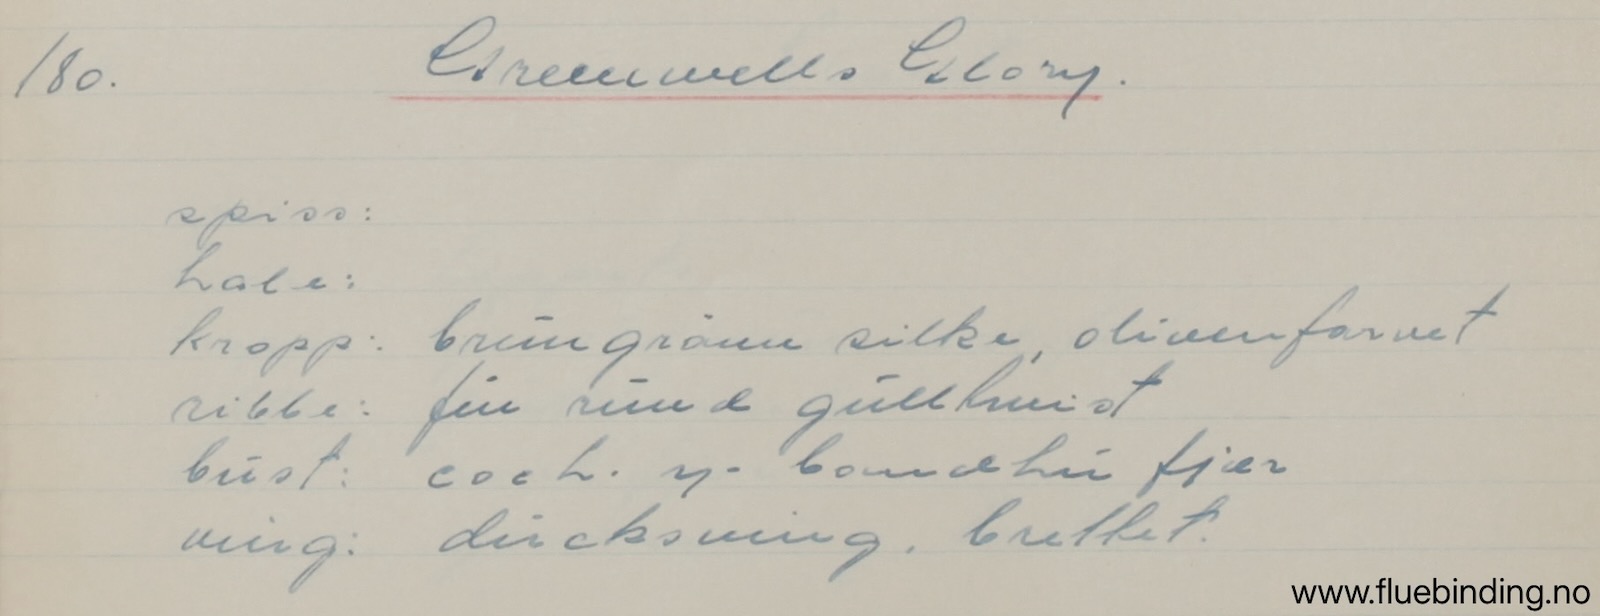 180. Greenwells Glory.
spiss:
hale:
kropp: brungrönn silke, olivenfarvet
ribbe: fin rund gulltvist
bust: coch. y. bondhu fjær
ving: duckswing. brettet.
www.fluebinding.no